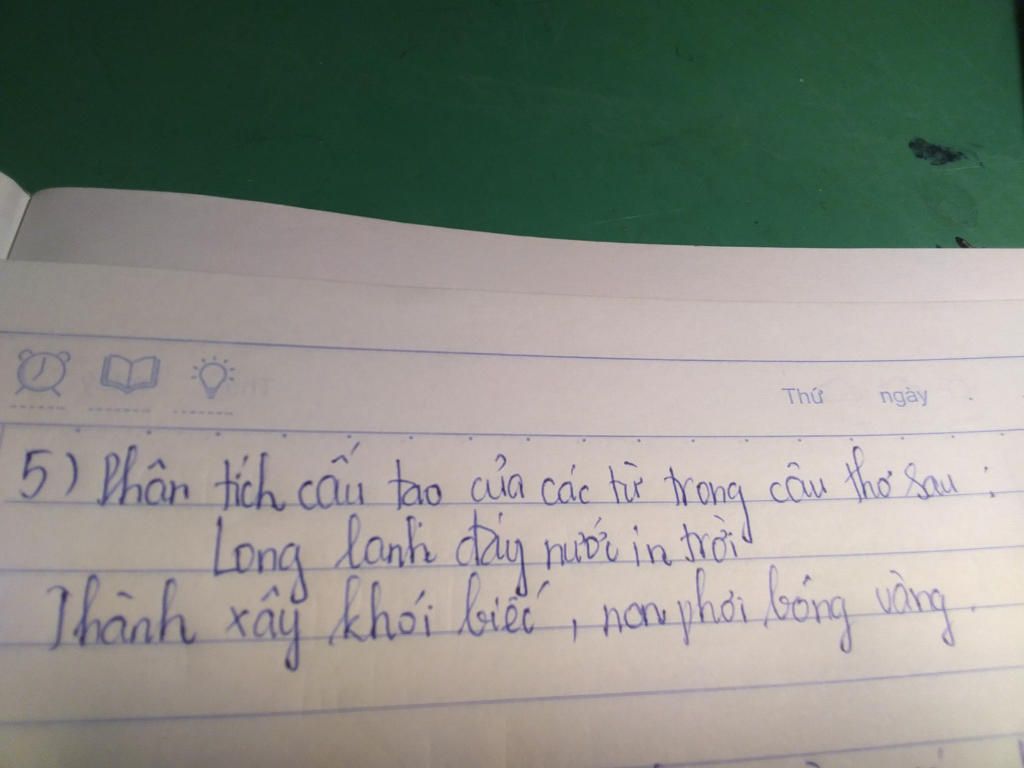 Thứ ngày
5) Phân tích cấu tạo của các từ trong câu thơ sau:
Long lanh đáy nước in trời
Thành xây khói biếc, non phơi bóng vàng.